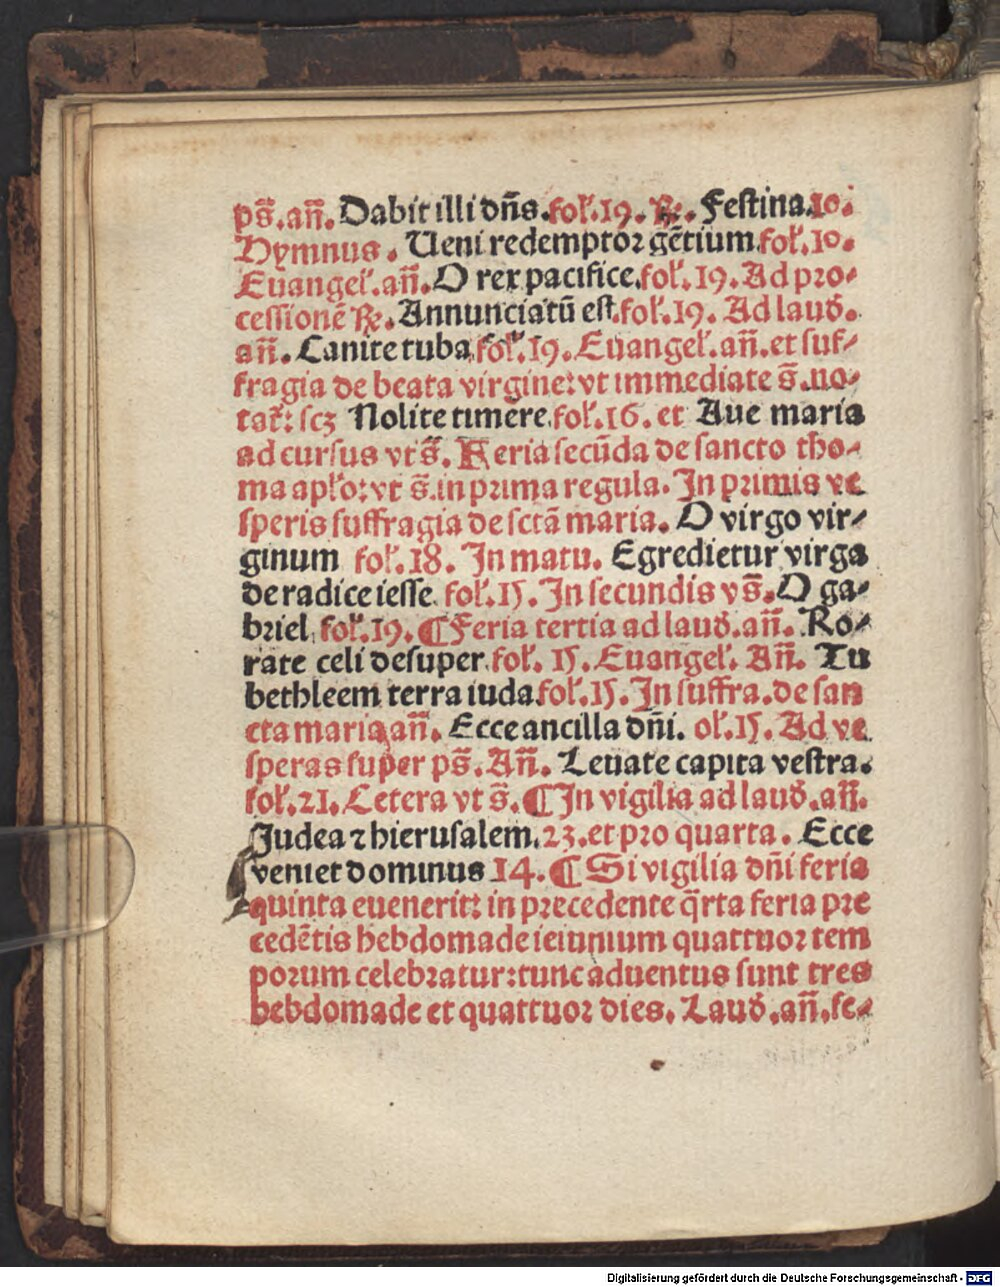 ps̄.an̄.Dabit illi dn̄s.fol̕.19.℟. Festina.10.
Hymnus. Ueni redemptoꝛ gētium.fol̕.10.
Euangel̕.an̄.O rex pacifice.fol̕.19.Ad pro⸗
cessionē ℟. Annunciatū est.fol̕.19. Ad laud̕.
an̄. Canite tuba.fol̕.19.Euangel̕.an̄.et suf⸗
fragia de beata virgine:vt immediate s̄.no⸗
tat̕: scꝫ Nolite timere.fol̕.16.et Aue maria
ad cursus vt s̄. Feria secūda de sancto tho⸗
ma apl̕o:vt s̄.in pꝛima regula. In pꝛimis ve
speris suffragia de sctā maria. O virgo vir⸗
ginum fol̕.18. In matu. Egredietur virga
de radice iesse fol̕.15. In secundis v s̄.O ga⸗
briel fol̕.19.¶Feria tertia ad laud̕.an̄. Ro⸗
rate celi desuper.fol̕. 15.Euangel̕. An̄. Tu
bethleem terra iuda.fol̕.15.In suffra.de san
cta maria an̄. Ecce ancilla dn̄i. ol̕.15.Ad ve
speras super ps̄.An̄. Leuate capita vestra.
fol̕.21.Cetera vt s̄.¶In vigilia ad laud̕.an̄.
Judea ⁊ hierusalem.23.et pro quarta. Ecce
veniet dominus 14.¶Si vigilia dn̄i feria
quinta euenerit: in pꝛecedente q̄rta feria pꝛe
cedētis hebdomade ieiunium quattuoꝛ tem
porum celebꝛatur:tunc aduentus sunt tres
hebdomade et quattuoꝛ dies. Laud̕.an̄.fe⸗
Digitalisierung gefördert durch die Deutsche Forschungsgemeinschaft - DFG